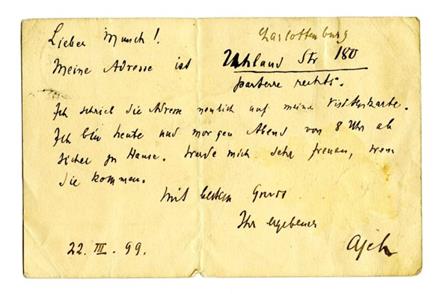 Charlottenburg
Lieber Munch!
Meine Adresse ist Uhland Str 180
parterre rechts.
Ich schrieb die Adresse neulich auf meine Visitenkarte.
Ich bin heute und morgen Abend von 8 Uhr ab
sicher zu Hause. Würde mich sehr freuen, wenn
Sie kommen.
Mit besten Gruss
Ihr ergebener
22. III. 99.